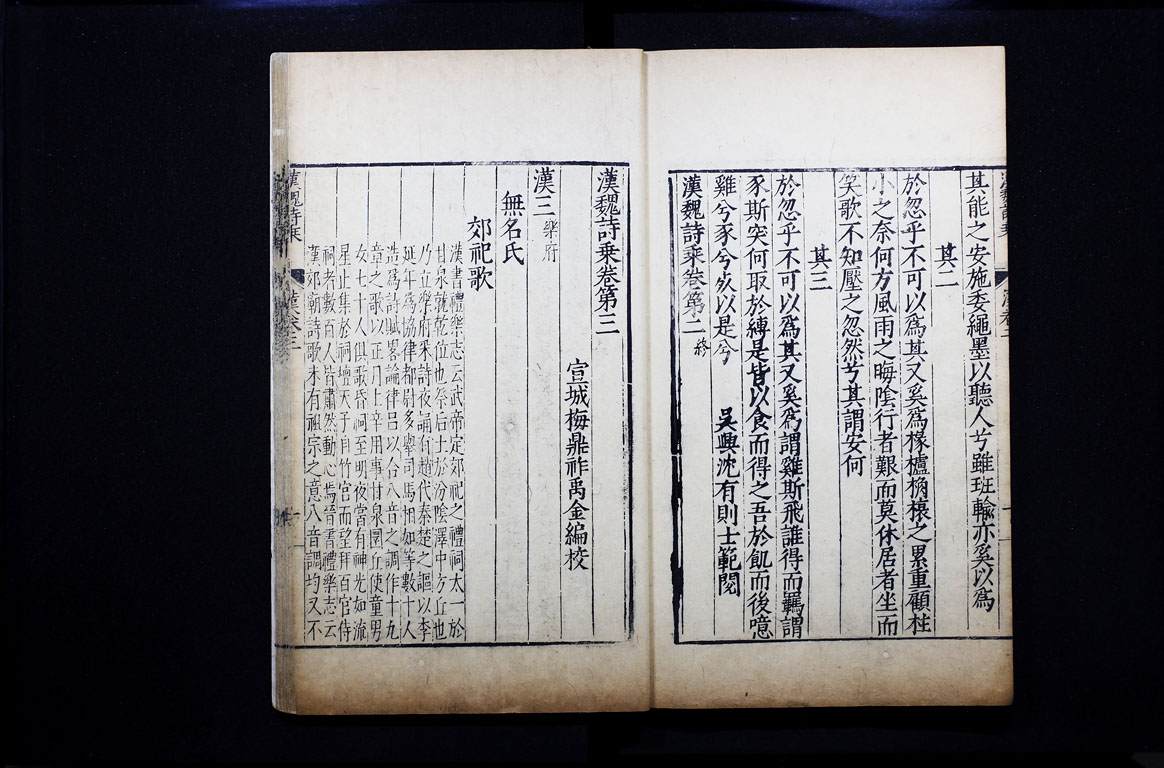 其能之安施委繩墨以聽人兮雖班輸亦奚以爲
其二
於忽乎不可以爲其又奚爲椽櫨桷榱之累重顧柱
小之奈何方風雨之晦陰行者艱而莫休居者坐而
笑歌不知壓之忽然兮其謂安何
其三
於忽乎不可以爲其又奚爲謂雞斯飛誰得而羈謂
豕斯突何取於縛是皆以食而得之吾於飢而後噫
雞兮豕兮死以是兮
吳興沈有則士範閱
漢魏詩乗卷第二 終
漢魏詩乗卷第三
宣城梅鼎祚禹金編校
漢三 樂府
無名氏
郊祀歌
漢書禮樂志云武帝定郊祀之禮祠太一於
甘泉就乾位也祭后土於汾陰澤中方丘也
乃立樂府采詩夜誦有趙代秦楚之謳以李
延年爲協律都尉多舉司馬相如等數十人
造爲詩賦畧論律吕以合八音之調作十九
章之歌以正月上辛用事甘泉圜丘使童男
女七十人俱歌昏祠至明夜常有神光如流
星止集於祠壇天子自竹宮而望拜百官侍
祠者數百人皆肅然動心焉晉書禮樂志云
漢郊廟詩歌未有祖宗之意八音調均又不
漢魏詩乗
漢卷三